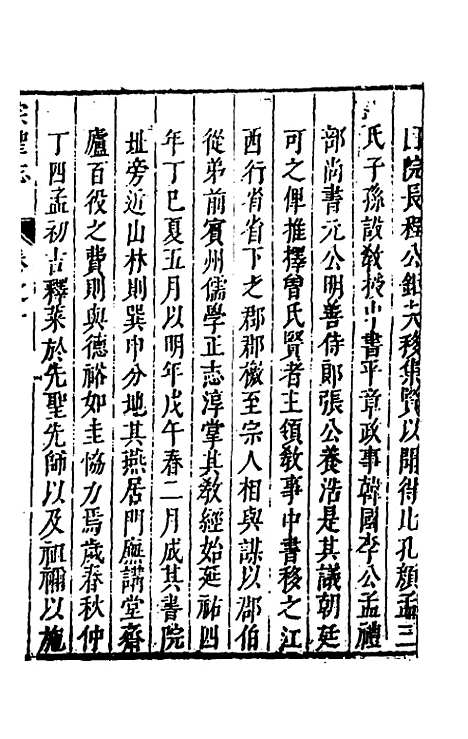 院長程公鉅夫移集賢以聞得比孔顔孟三
氏子孫設敎授中書平章政事韓國李公孟禮
部尚書元公明善侍郎張公養浩是其議朝廷
可之俾推擇曾氏賢者主領敎事中書移之江
西行省省下之郡郡檄至宗人相與謀以郡伯
從弟前賓州儒學正志淳掌其敎經始延祐四
年丁巳夏五月以明年戊午春二月成其書院
址旁近山林則巽申分地其燕居門廡講堂齋
廬百役之費則與德裕如圭恊力焉歲春秋仲
丁四孟初吉釋菜於先聖先師以及祖禰以施
宗聖志 卷之十